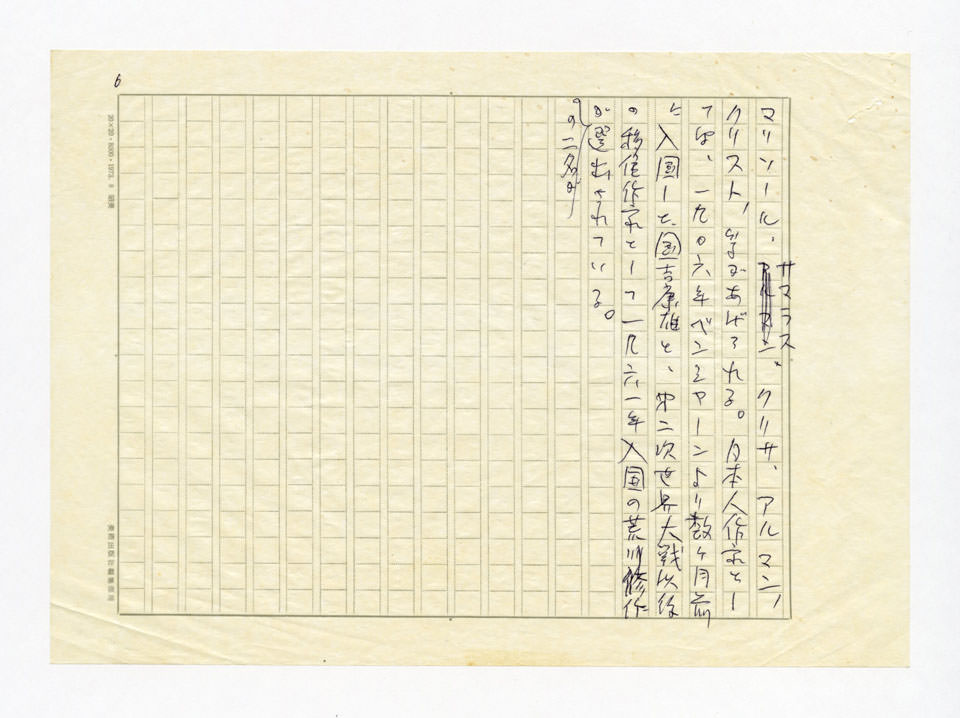 6
マリソール、サマラス、クリサ、アルマン、
クリスト、等があげられる。日本人作家とし
ては、一九〇六年ベンシャーンより数ヶ月前
に入国した国吉康雄と、第二次世界大戦以後
の移住作家として一九六一年入国の荒川修作
の二名が
が選出されている。
20×20